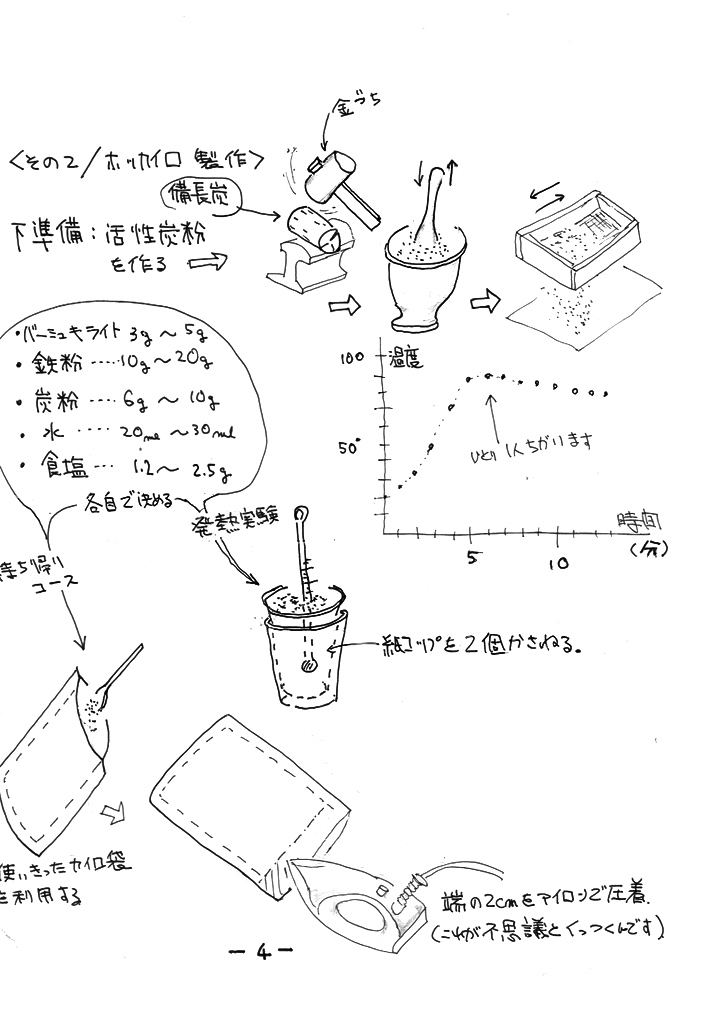 金づち
<その2/ホッカイロ 製作>
備長炭
下準備：活性炭粉
を作る
・バーミュキライト 3g～5g
・鉄粉 ‥‥10g～20g
・炭粉 ‥‥ 6g～10g
・水 ‥‥ 20ml～30ml
・食塩 ‥ 1.2～2.5g
各自で決める
発熱実験
100
温度
50°
ひとり1人ちがいます
時間
(分)
5
10
持ち帰り
コース
紙コップを2個かさねる。
使いきったカイロ袋
を利用する
端の2cmをアイロンで圧着.
(これが不思議とくっつくんです)
－4－